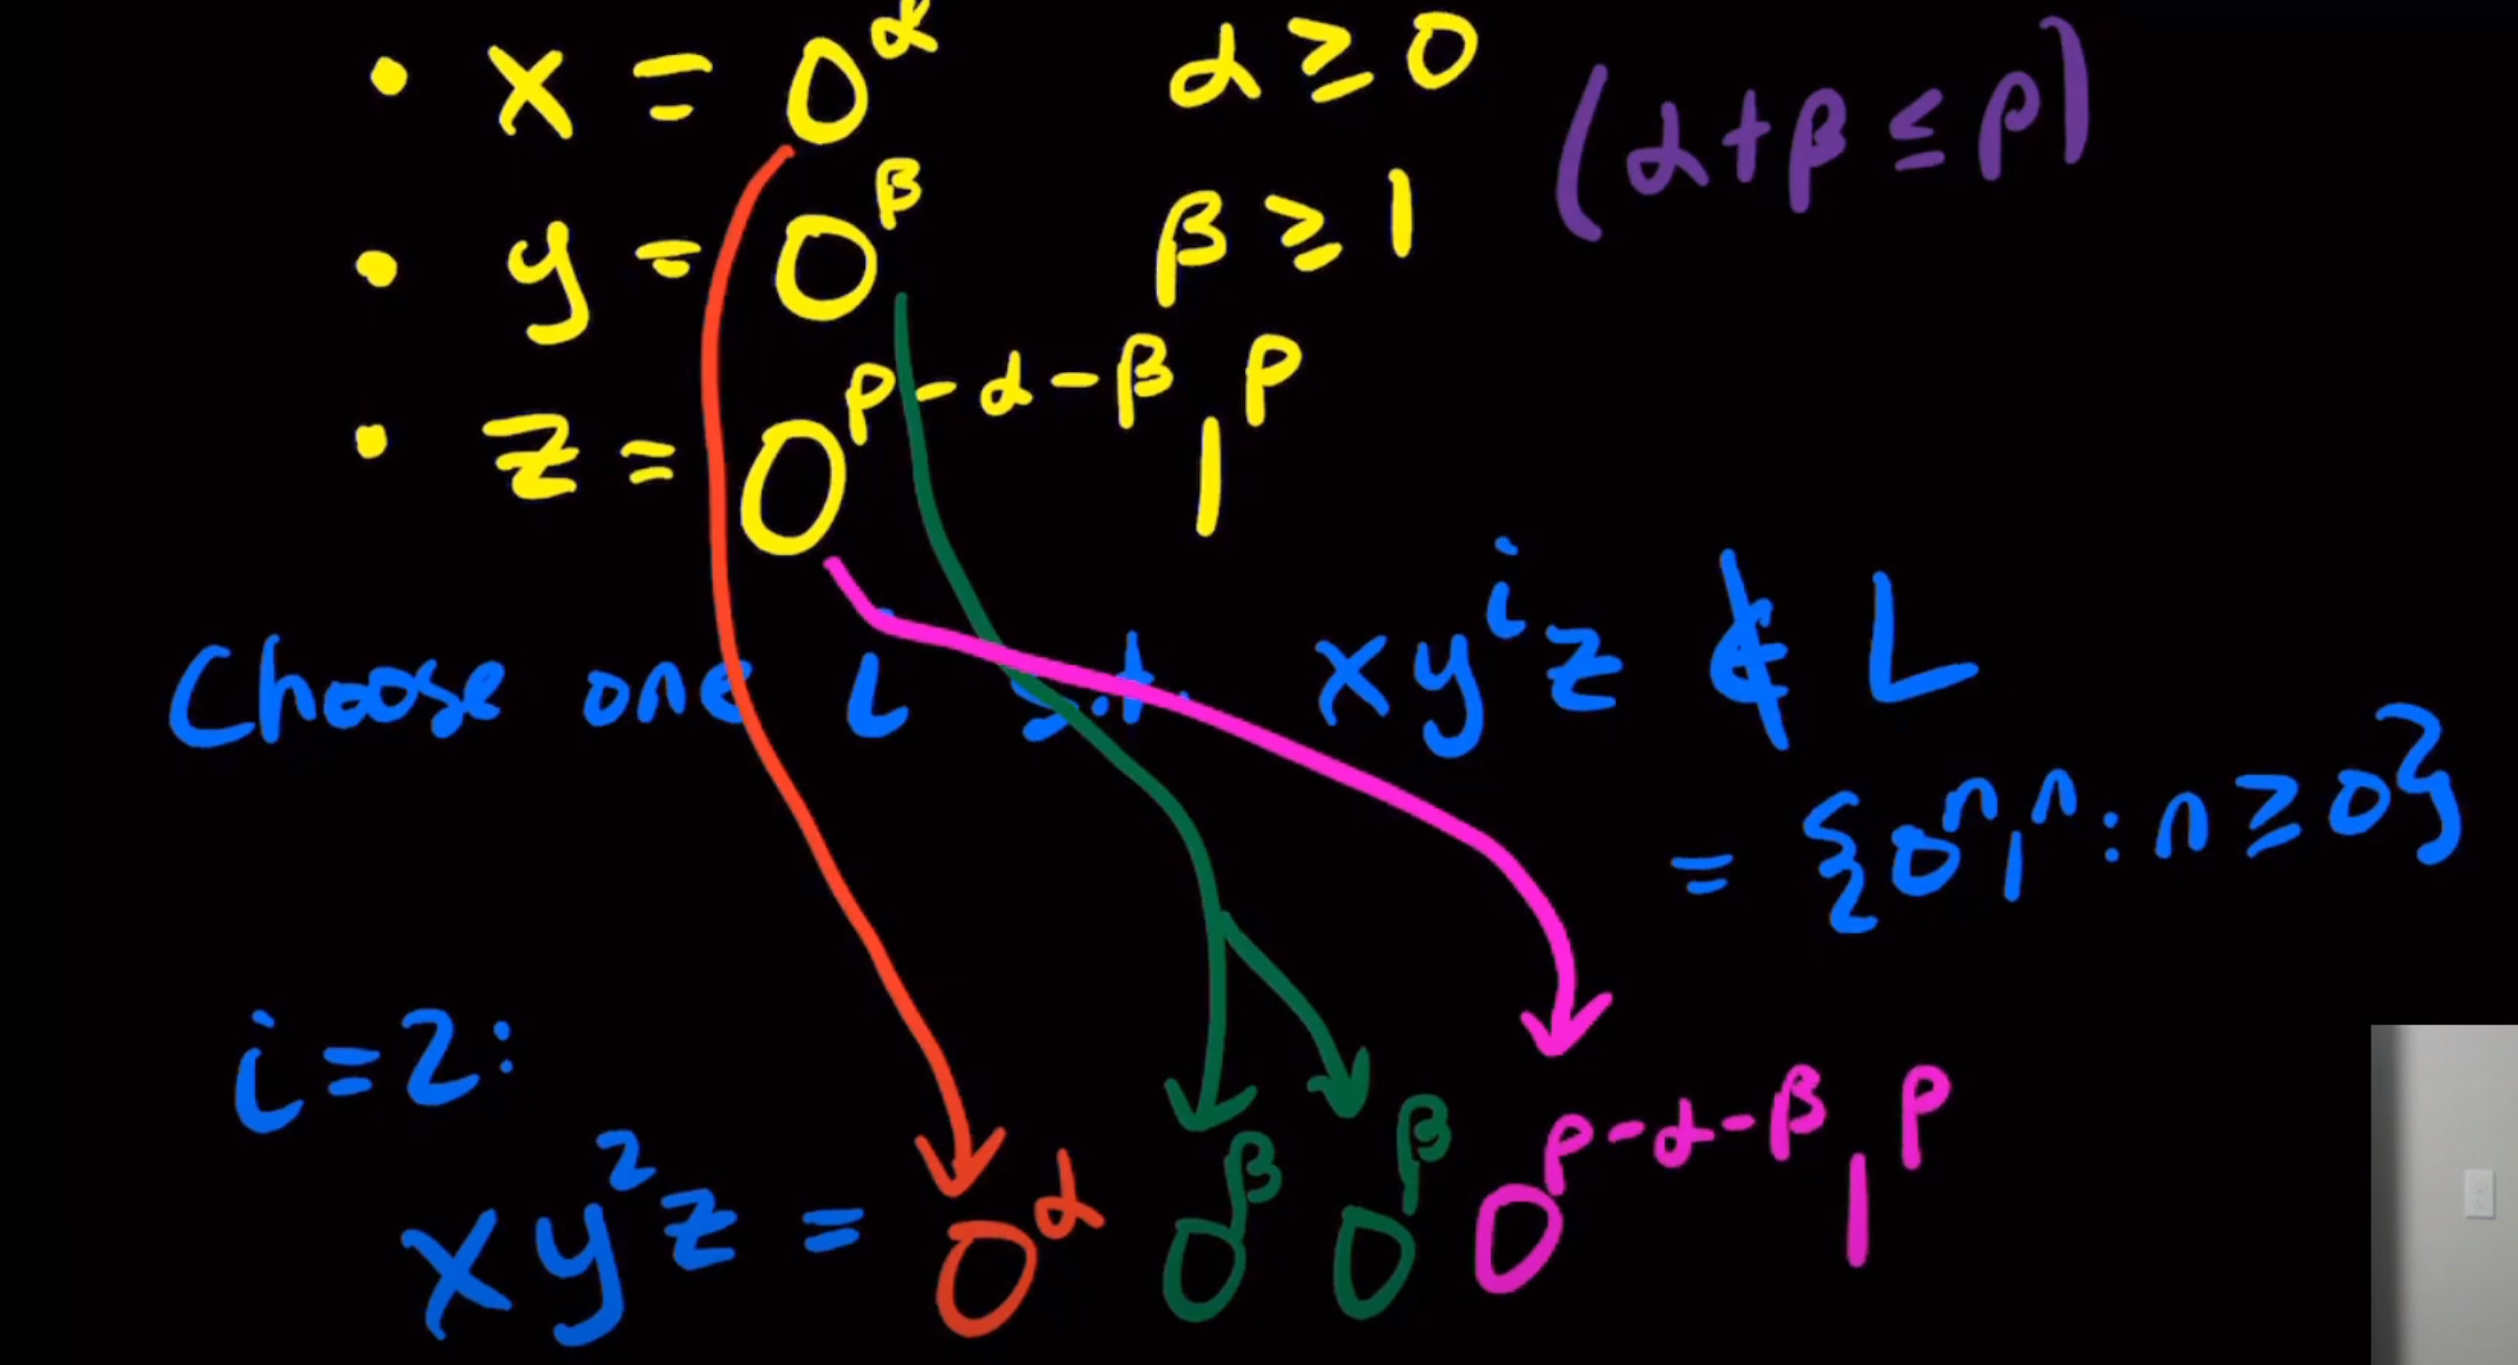 • x = 0^α α ≥ 0 (α + β ≤ p)
• y = 0^β β ≥ 1
• z = 0^{p-α-β} 1^p
Choose one i s.t. xy^i z ∉ L
= {0^n 1^n : n ≥ 0}
i = 2:
xy^2 z = 0^α 0^β 0^β 0^{p-α-β} 1^p